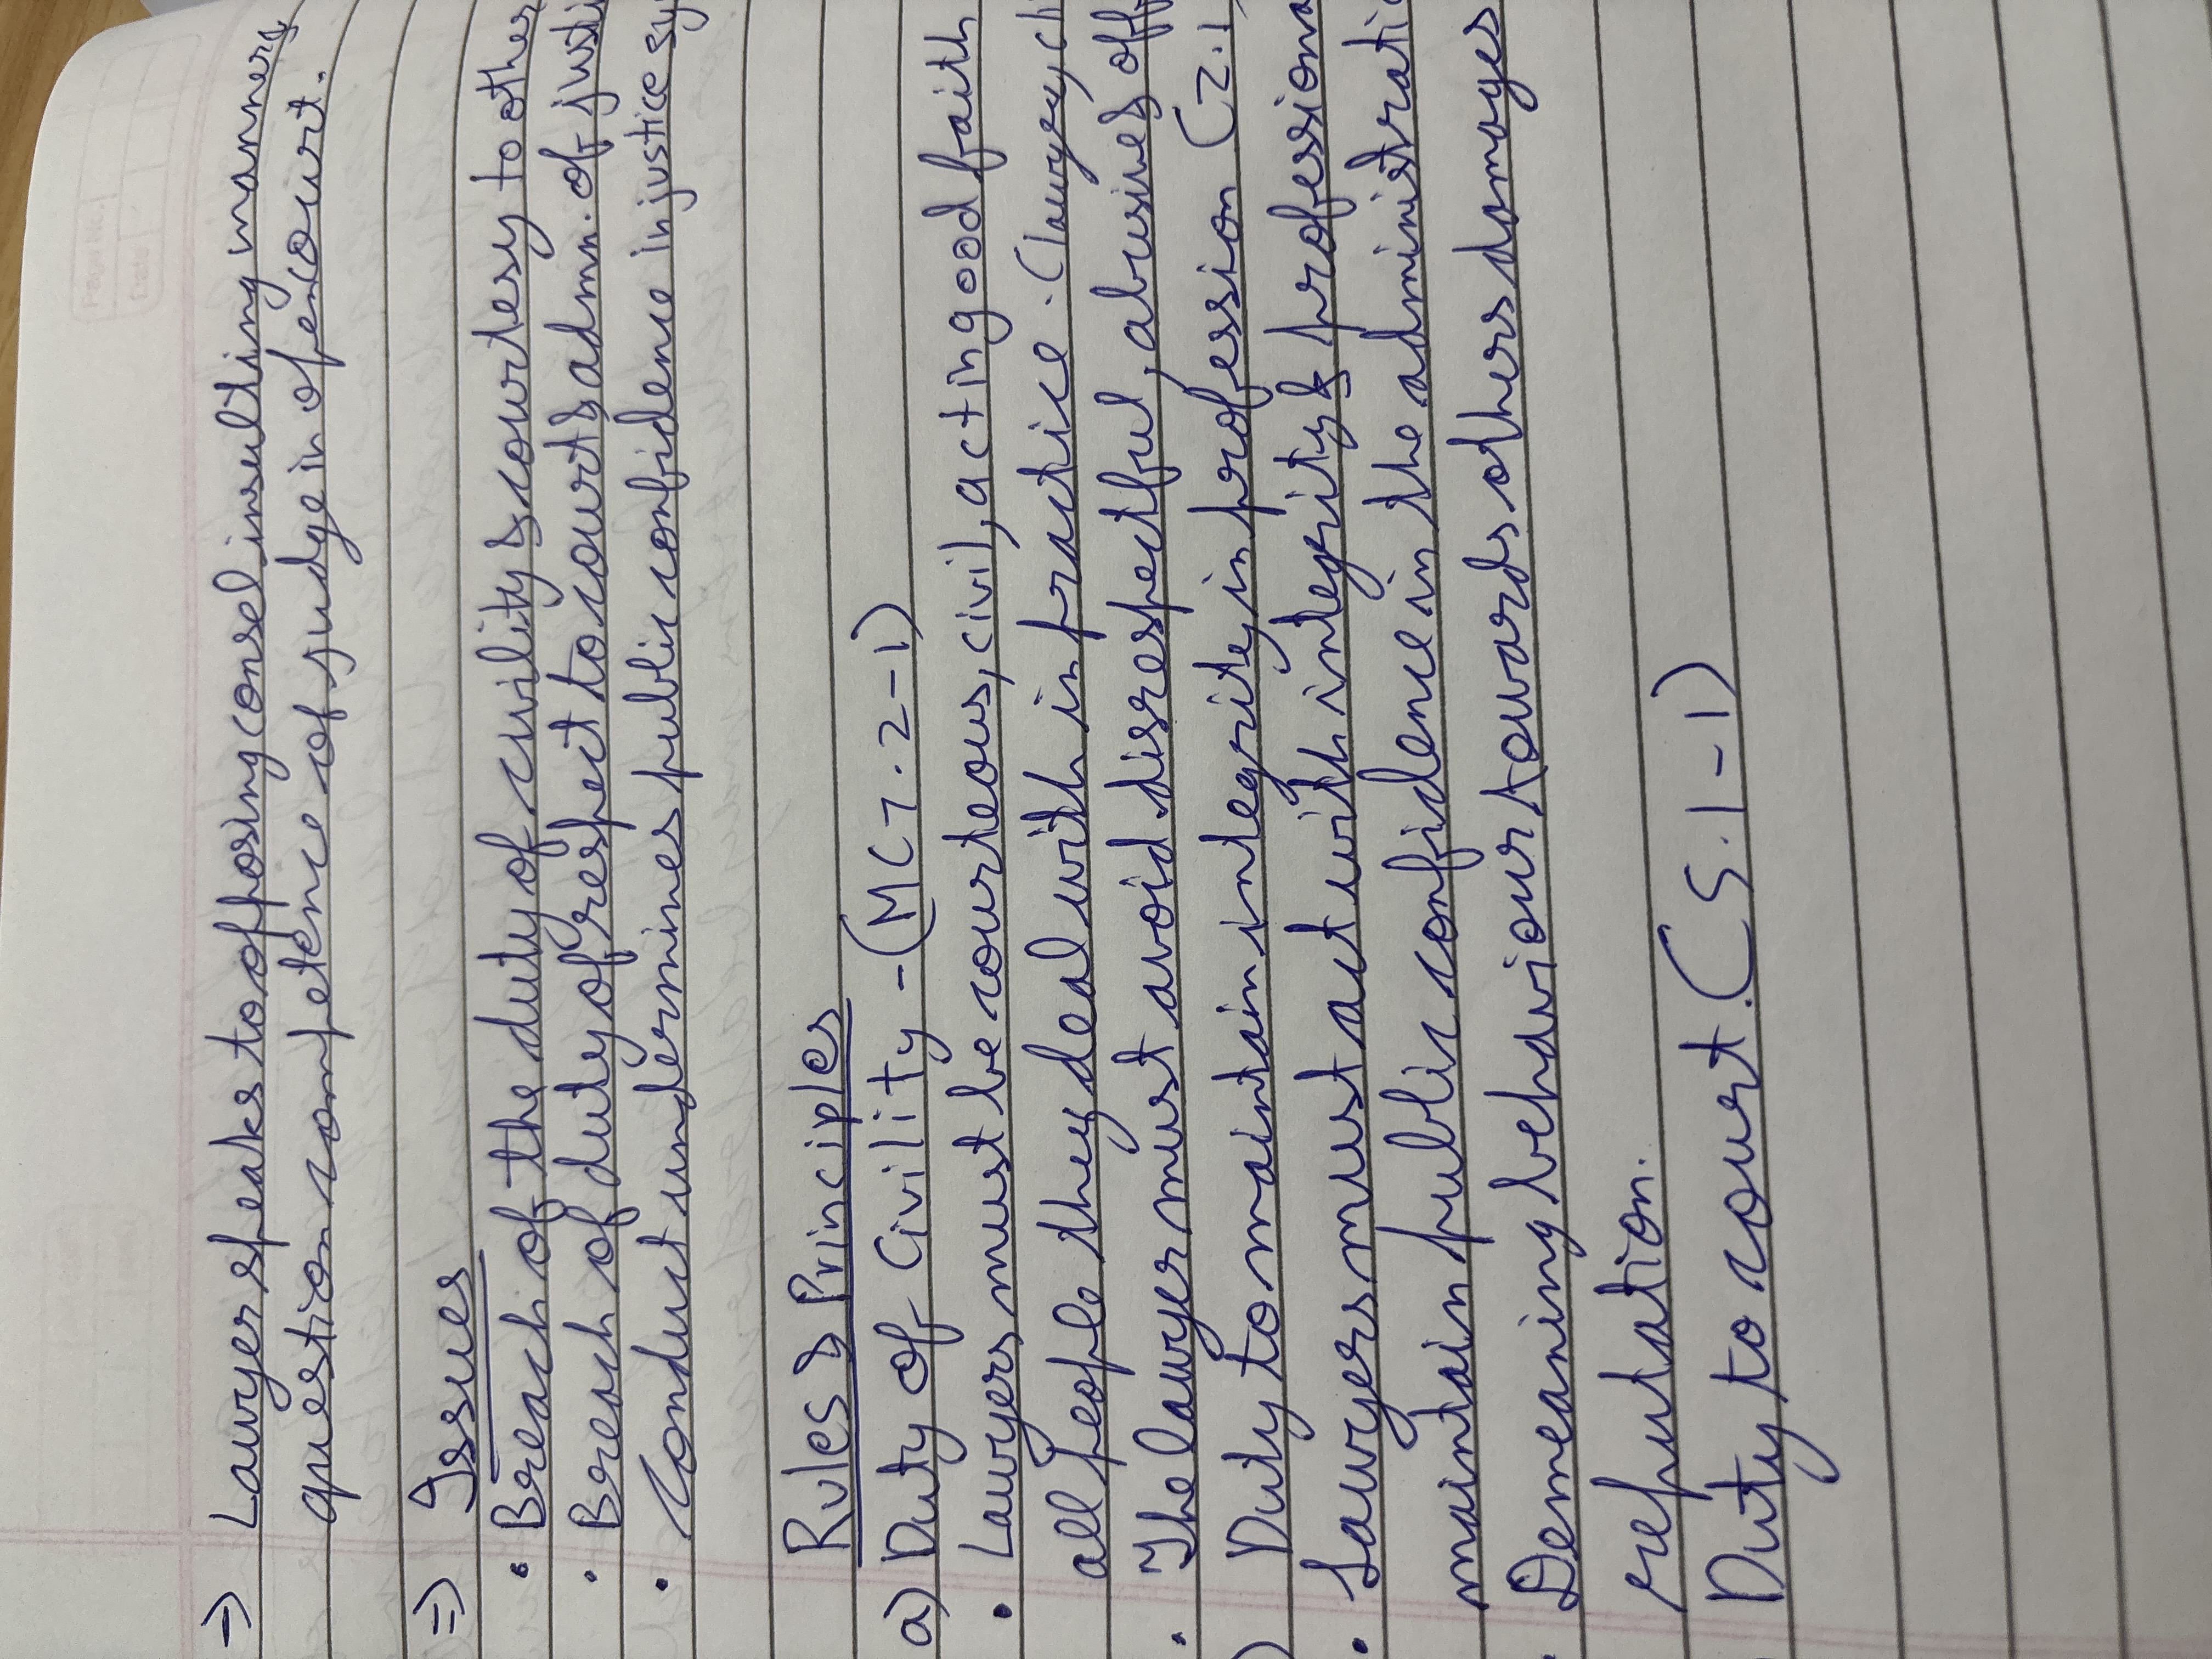 ⇒ Lawyer speaks to opposing consel insulting manner,
question competence of judge in open court.
⇒ Issues
• Breach of the duty of civility & courtesy to other
• Breach of duty of respect to court & admn. of justi
• Conduct undermines public confidence in justice sy
Rules & Principles
a) Duty of Civility - (MC 7.2-1)
• Lawyers must be courteous, civil, act in good faith
all people they deal with in practice. (lawyer, cli
• The lawyer must avoid disrespectful, abusive & off
) Duty to maintain integrity in profession (2.1
• Lawyers must act with integrity & professiona
maintain public confidence in the administratio
• Demeaning behaviour towards others damages
reputation.
Duty to court. (5.1-1)